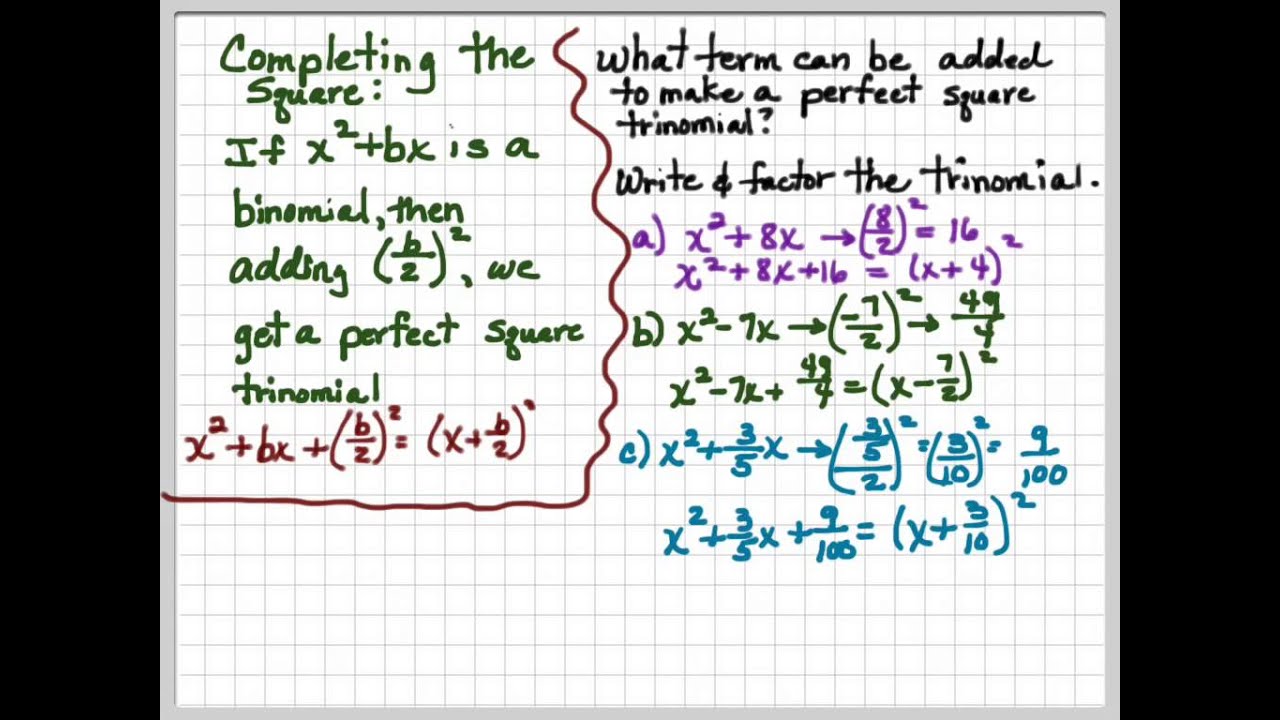 Completing the
Square:
If x²+bx is a
binomial, then
adding (b/2)², we
get a perfect square
trinomial
x²+bx+(b/2)²= (x+b/2)²
What term can be added
to make a perfect square
trinomial?
Write & factor the trinomial.
a) x²+8x →(8/2)²= 16
x²+8x+16 = (x+4)²
b) x²-7x →(-7/2)²→ 49/4
x²-7x+ 49/4 =(x-7/2)²
c) x²+3/5x →((3/5)/2)²=(3/10)²= 9/100
x²+3/5x+9/100= (x+3/10)²